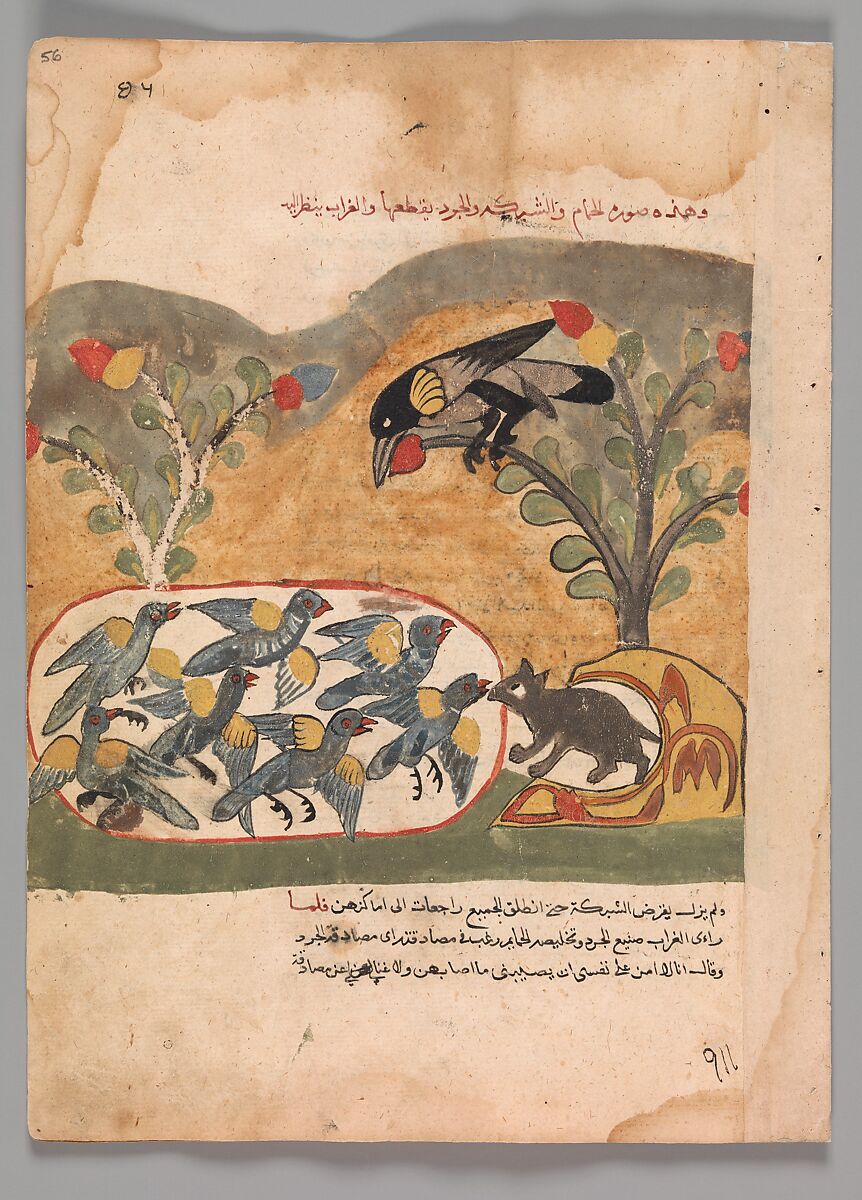 56
وهذه صوره الحمام والشبكه والجرد يقطعها والغراب ينظر اليه
ولم يزل يقرض الشبكة حتى انطلق الجميع راجعات الى اماكنهن فلما
راءى الغراب صنيع الجرد وتخليصه الحمام رغب في مصادقته الجرد
وقال انا لا امن على نفسى ان يصيبنى ما اصابهن ولا عن مصادقة